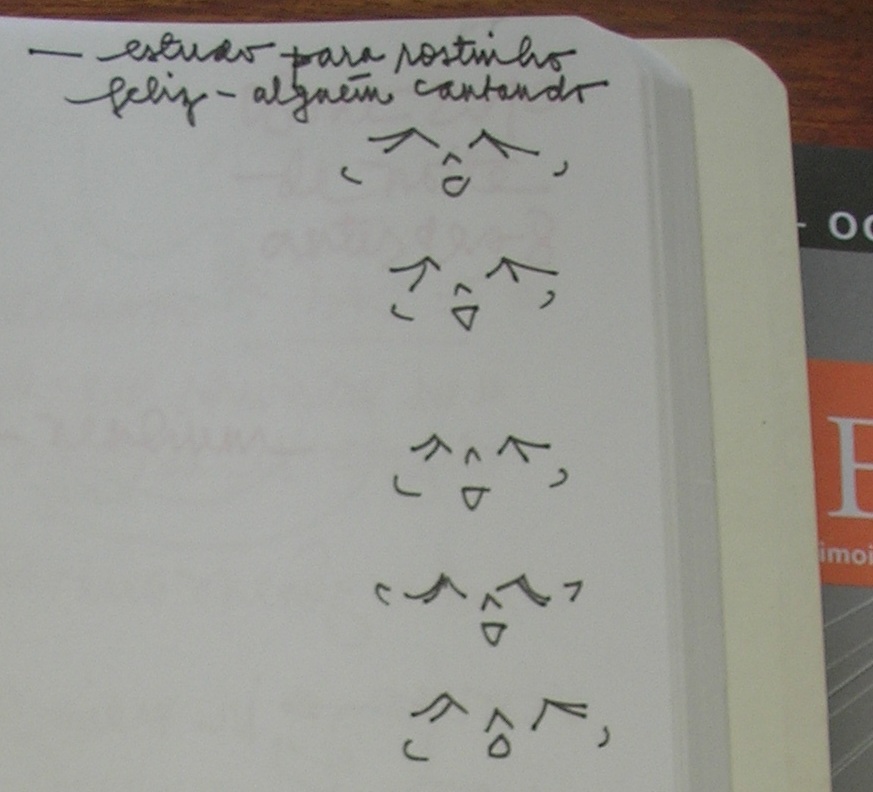 — estudo para rostinho
feliz - alguém cantando
OC
E
imoi